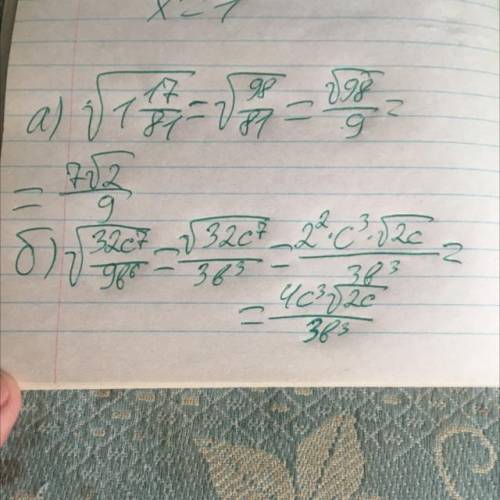 x = 1
а) √(1 17/81) = √(98/81) = √98/9 =
= 7√2/9
б) √(32c⁷/9в⁶) = √(32c⁷)/3в³ = 2²·c³·√(2c)/3в³ =
= 4c³√(2c)/3в³